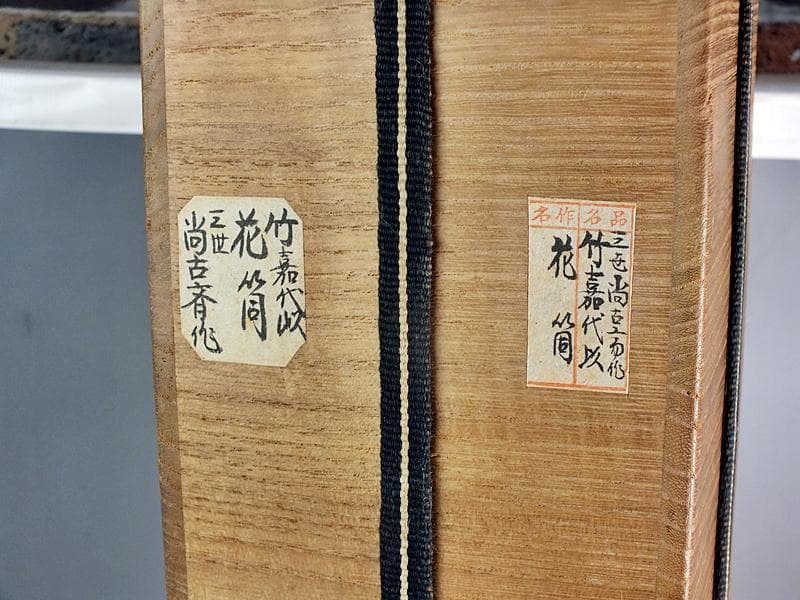 品名作名
三世尚古斎作
竹嘉代以
花筒
竹嘉代以
花筒
三世
尚古斎作